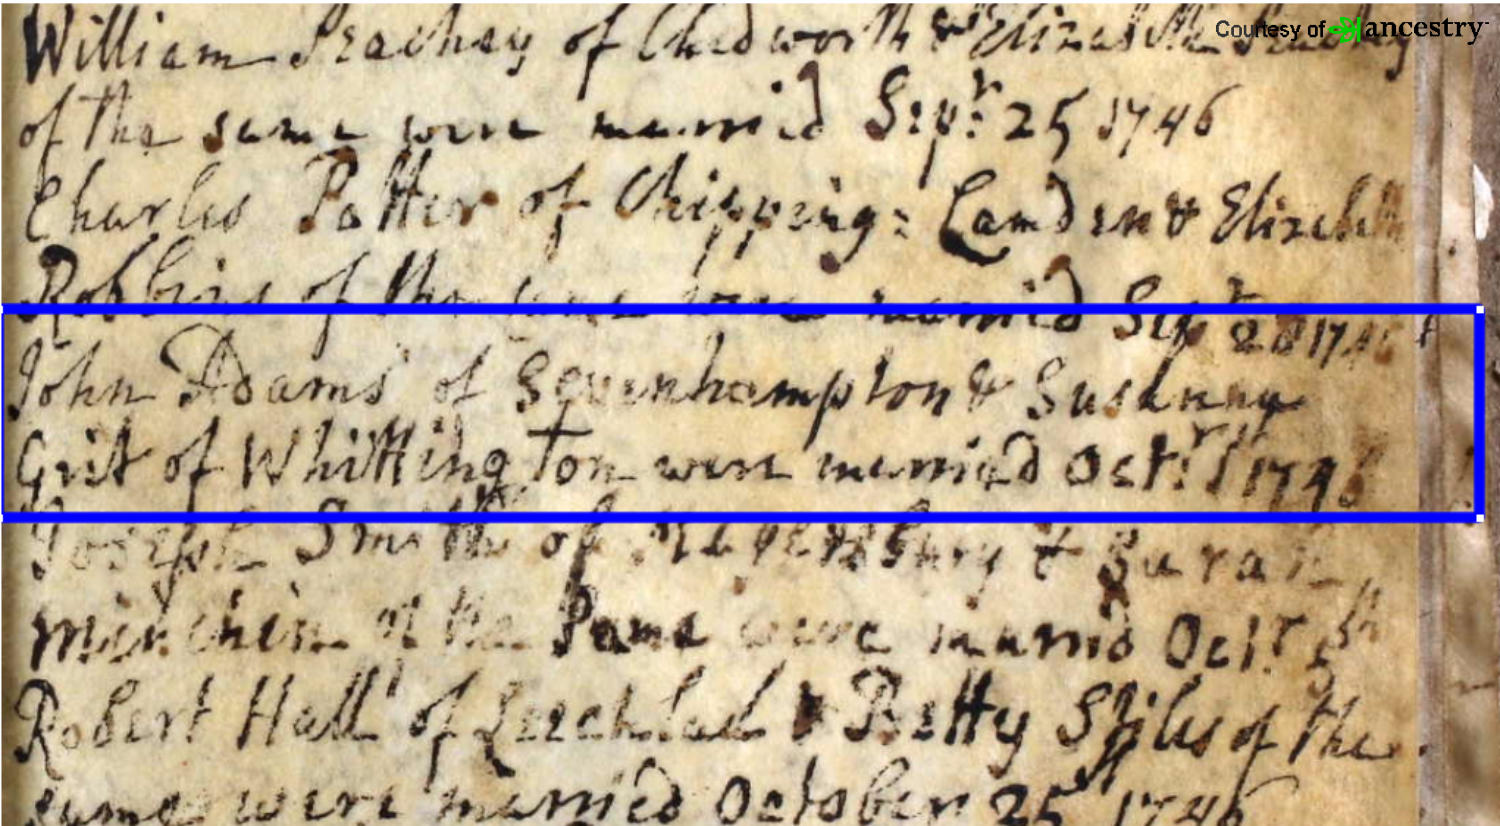 Courtesy of ancestry
William Peachey of Chedworth & Elizabeth Peachey
of the same were married Sepr: 25 1746
Charles Potter of Chipping: Camden & Elizabeth
Robbins of the same were married Sepr 28 1746
John Adams of Sevenhampton & Susanna
Grit of Whittington were married Octr: 1st 1746
Joseph Smith of & Sarah
Minchin of the same were married Octr 5th
Robert Hall of Leechlad & Betty Stiles of the
same were married October 25th 1746